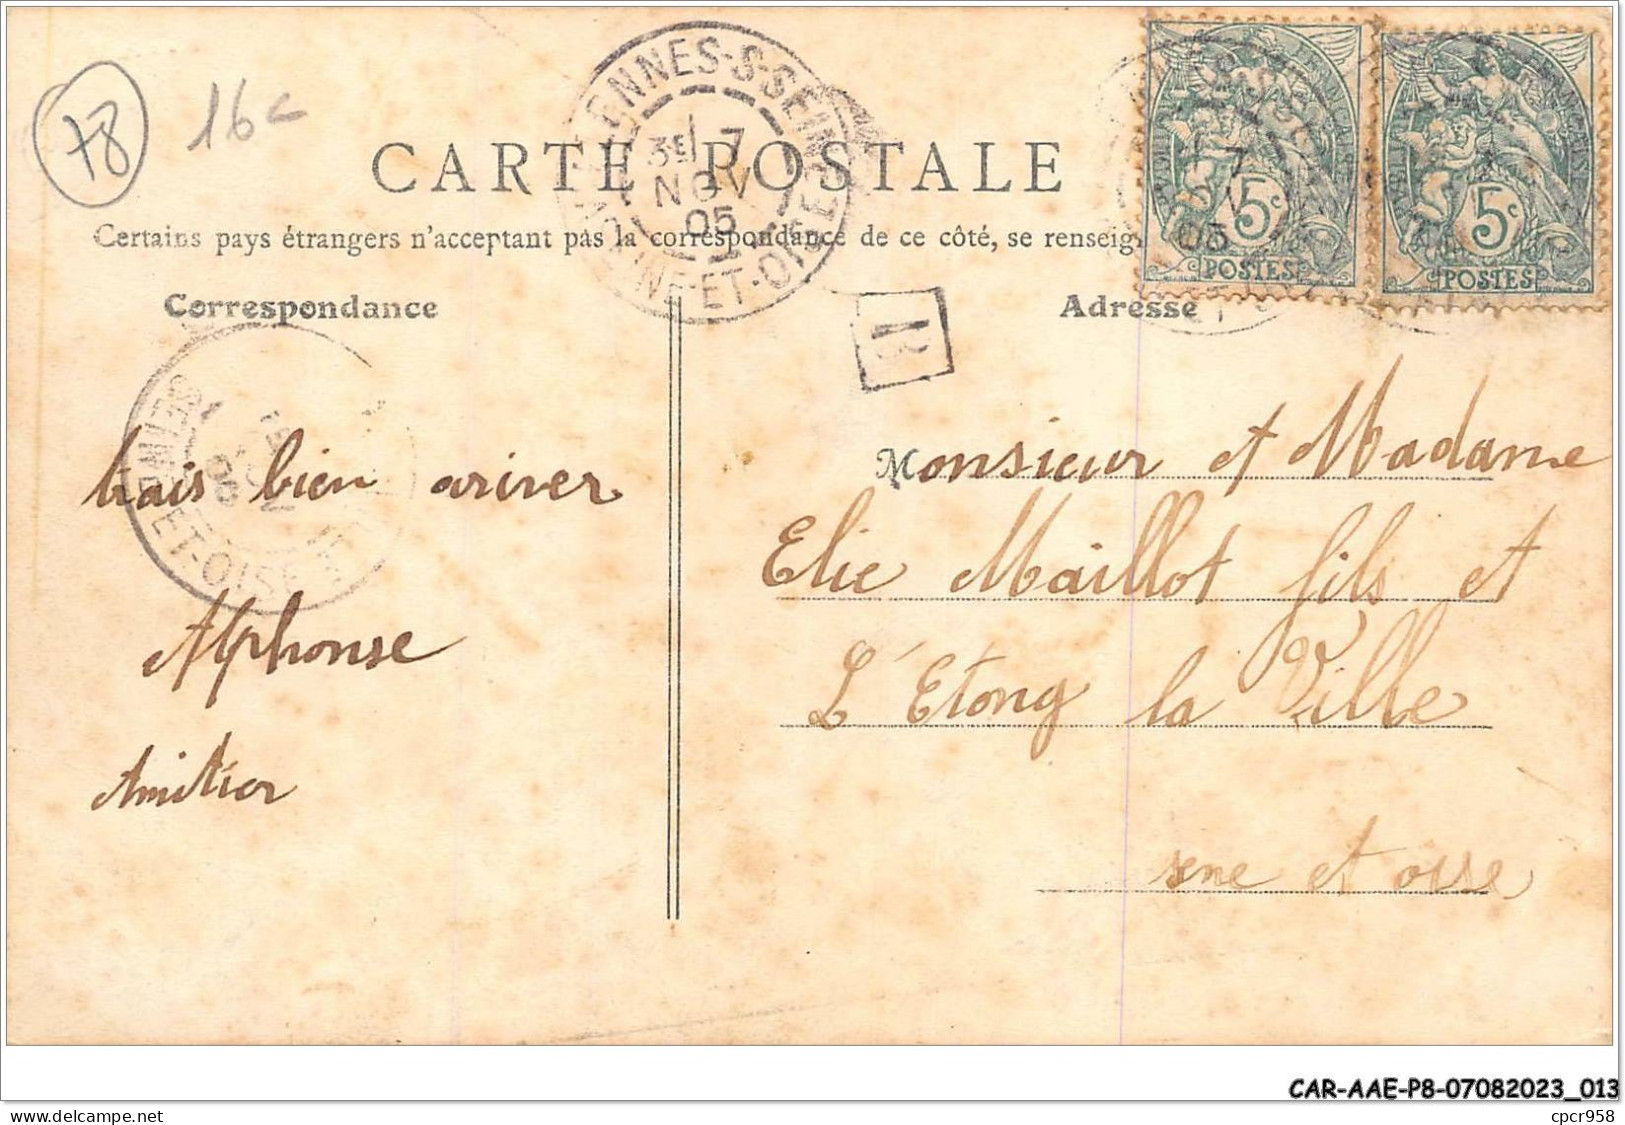 78
16c
CARTE POSTALE
3E 7
NOV
05
ET-OISE
Certains pays étrangers n'acceptant pas la correspondance de ce côté, se renseig
5c
POSTES
5c
POSTES
7
05
Correspondance
Adresse
B
ET-OISE
Monsieur et Madame
Elie Maillot fils et
L'Etong la Ville
sene et osse
bien ariver
Alphonse
CAR-AAE-P8-07082023_013
delcampe.net
cpcr958